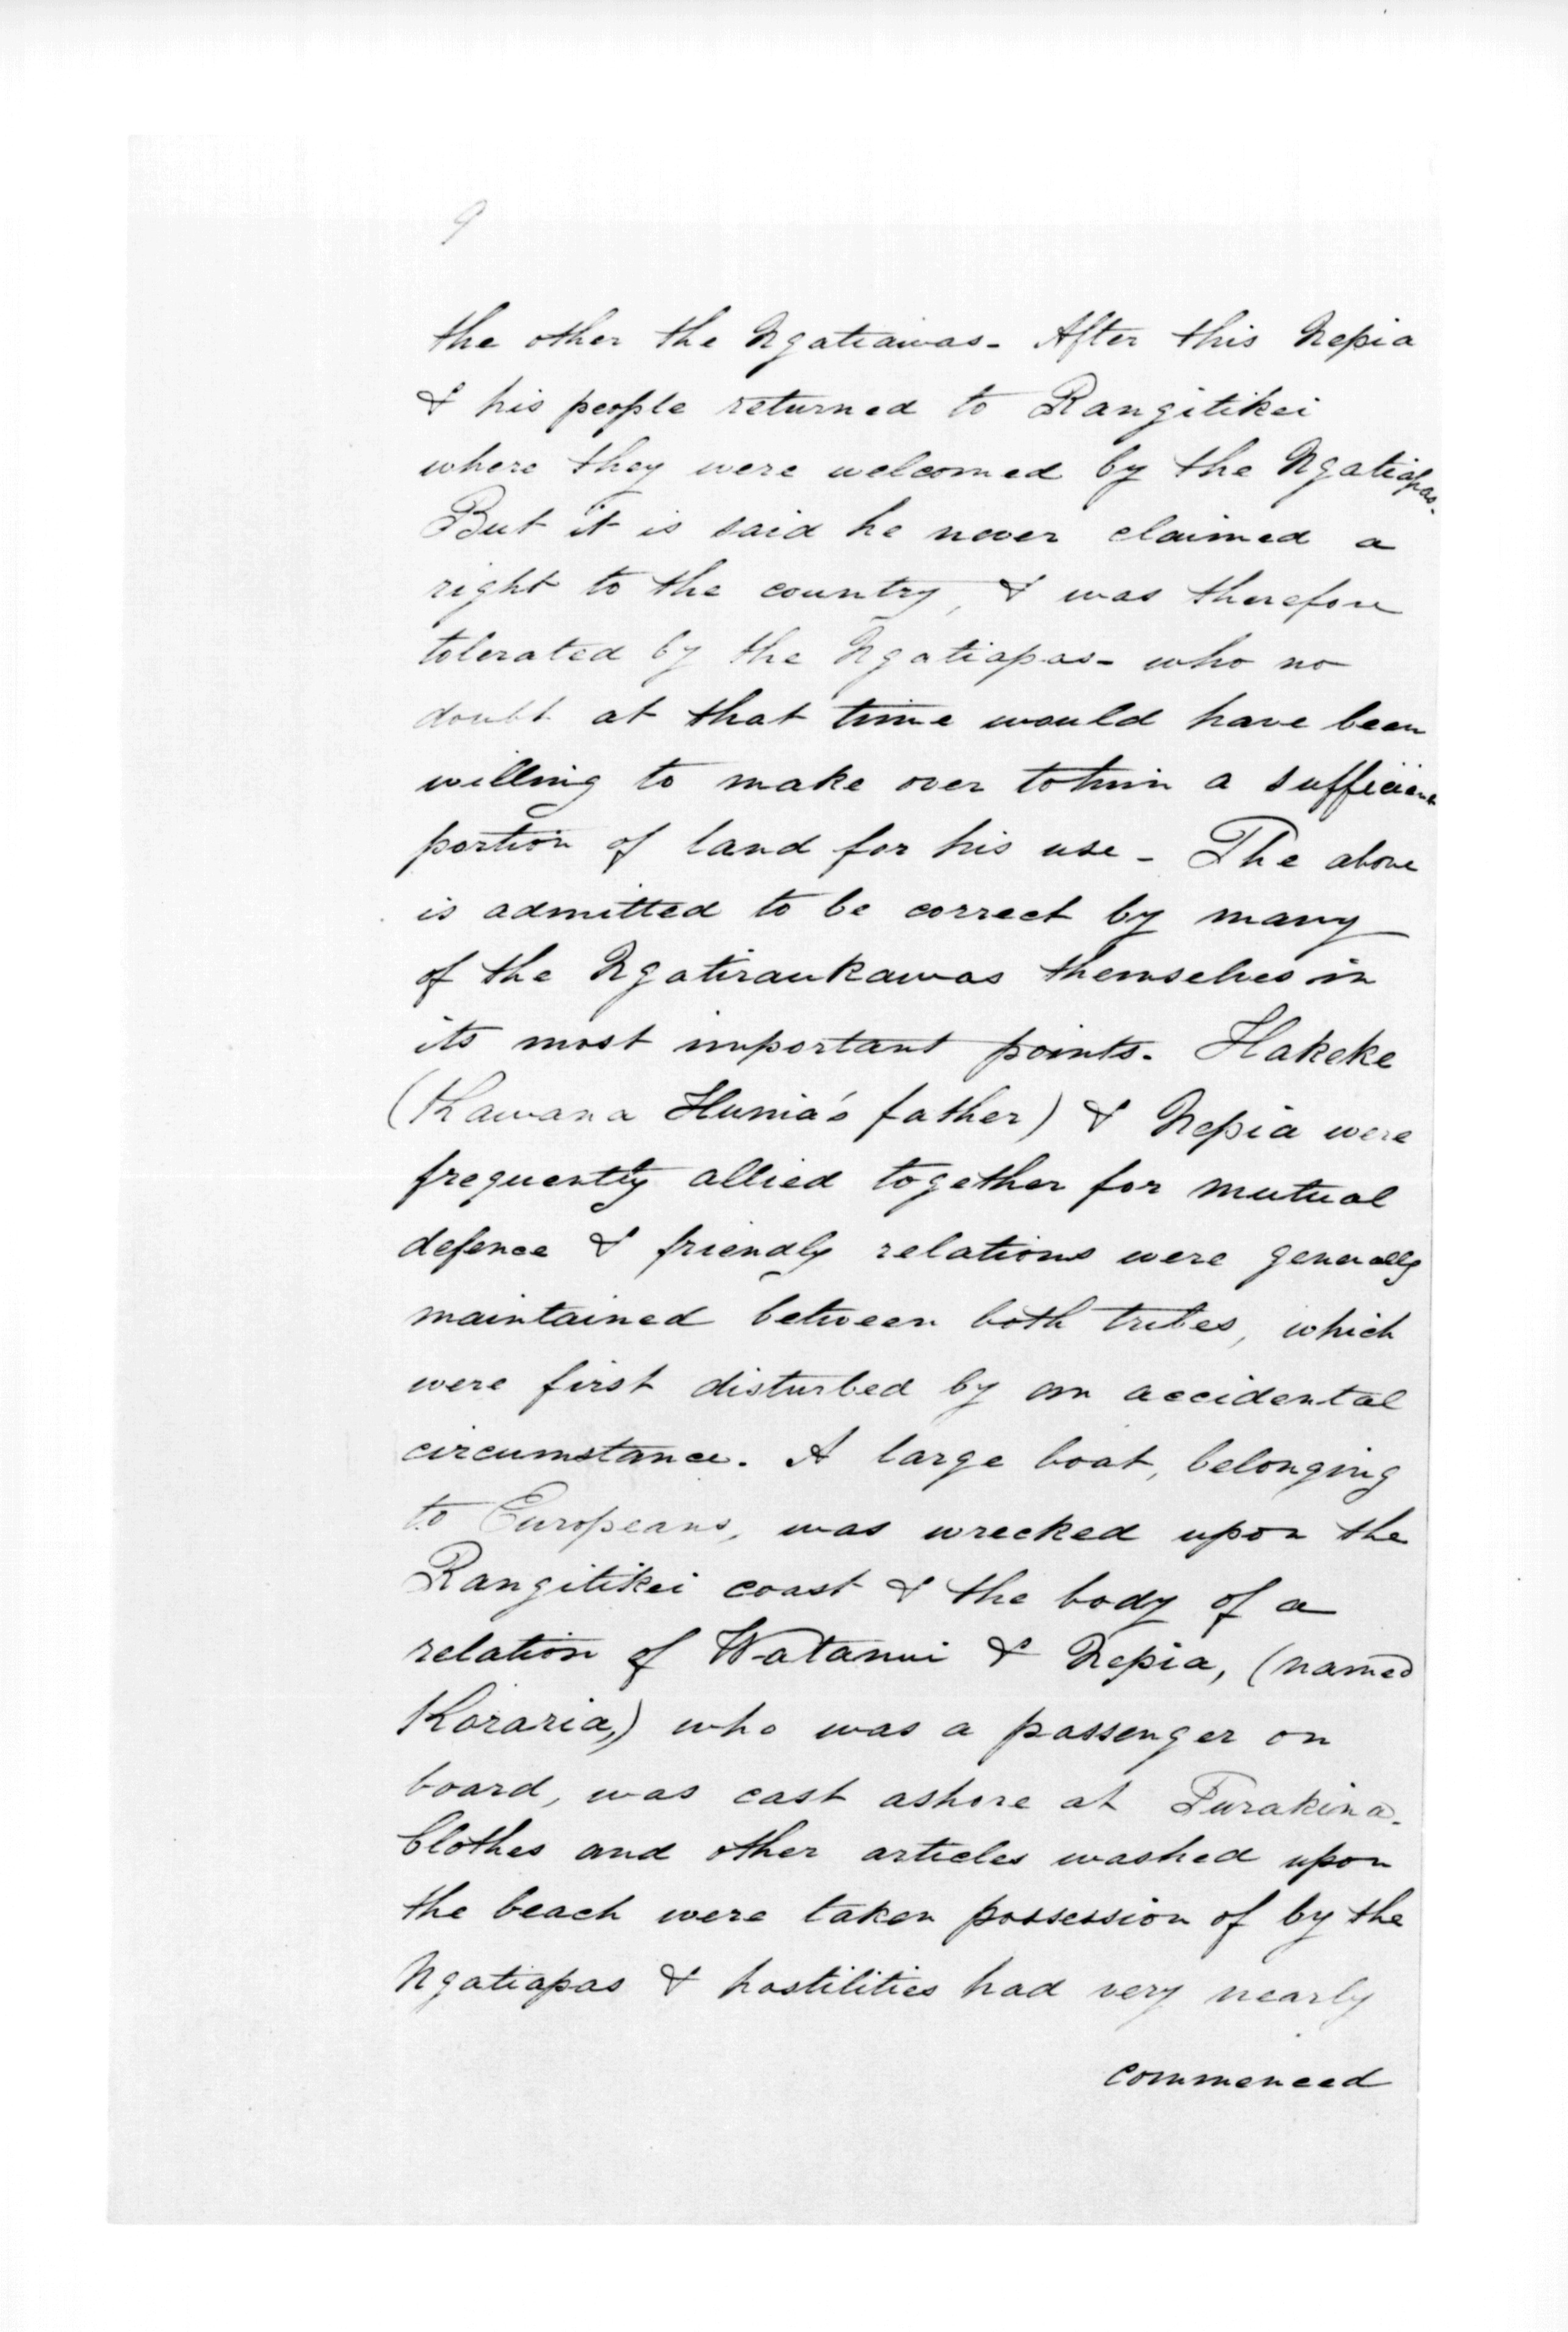 9
the other the Ngatiawas - After this Nepia
& his people returned to Rangitikei
where they were welcomed by the Ngatiapas.
But it is said he never claimed a
right to the country, & was therefore
tolerated by the Ngatiapas - who no
doubt at that time would have been
willing to make over to him a sufficient
portion of land for his use - The above
is admitted to be correct by many
of the Ngatiraukawas themselves in
its most important points. Hakeke
(Kawana Hunia's father) & Nepia were
frequently allied together for mutual
defence & friendly relations were generally
maintained between both tribes, which
were first disturbed by an accidental
circumstance. A large boat, belonging
to Europeans, was wrecked upon the
Rangitikei coast & the body of a
relation of Watanui & Nepia, (named
Koraria,) who was a passenger on
board, was cast ashore at Turakina.
Clothes and other articles washed upon
the beach were taken possession of by the
Ngatiapas & hostilities had very nearly
commenced